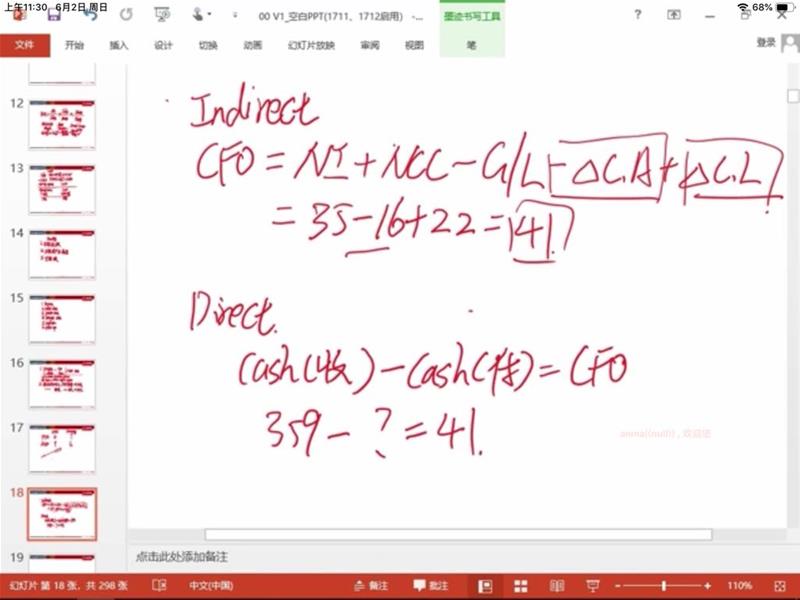 上午11:30 6月2日 周日
68%
00 V1_空白PPT(1711、1712启用) -...
墨迹书写工具
?
文件 开始 插入 设计 切换 动画 幻灯片放映 审阅 视图 笔 登录
12
13
14
15
16
17
18
19
Indirect
CFO = NI + NCC - G/L - △C.A + △C.L
= 35 - 16 + 22 = 41.
Direct.
Cash(收) - Cash(付) = CFO
359 - ? = 41.
anna((null)) , 欢迎您
单击此处添加备注
幻灯片 第 18 张，共 298 张 中文(中国) 备注 批注 110%